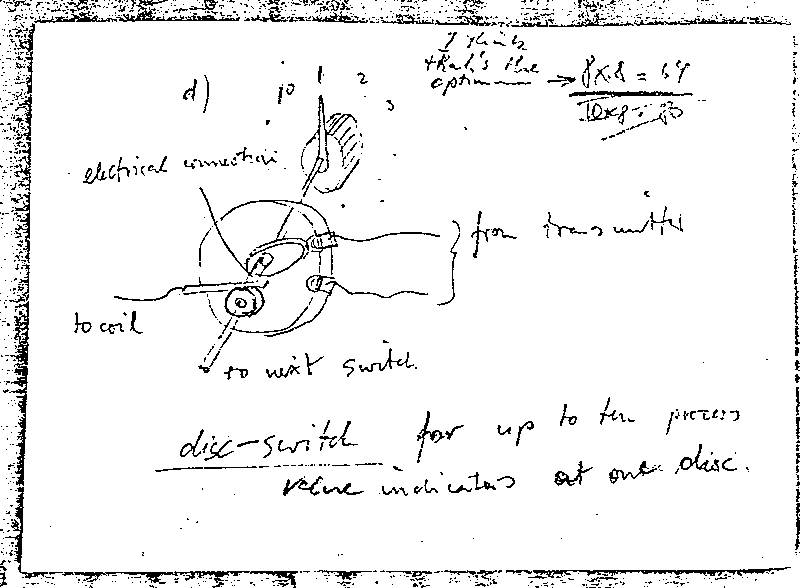 I think
that's the
optimum → 8x8 = 64
10x8 = 80
d) 10 1 2
3
electrical connection
from transmitter
to coil
to next switch
disc-switch for up to ten process
value indicators at one disc.